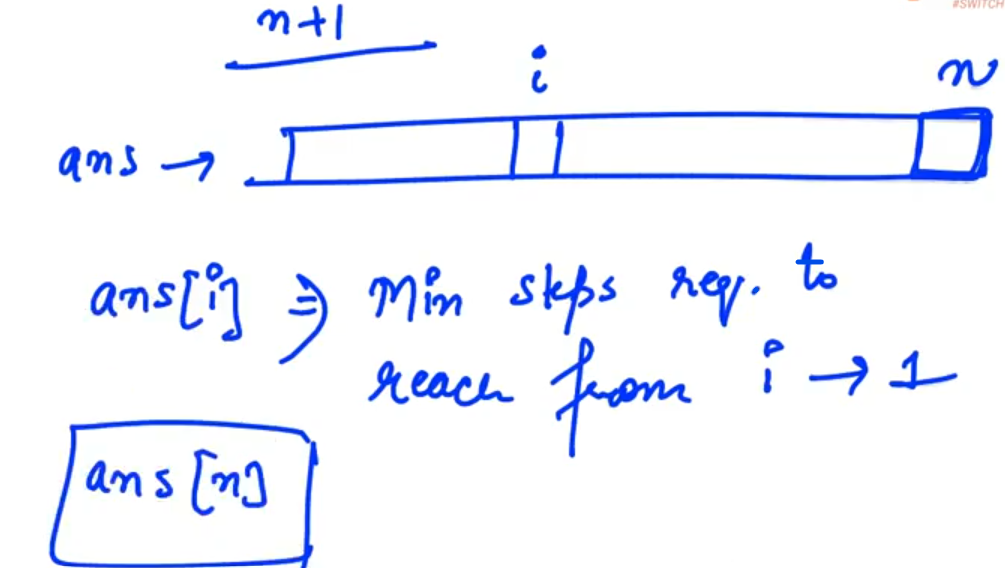 #SWITCH
n+1
i
n
ans →
ans[i] ⇒ Min steps req. to
reach from i → 1
ans[n]